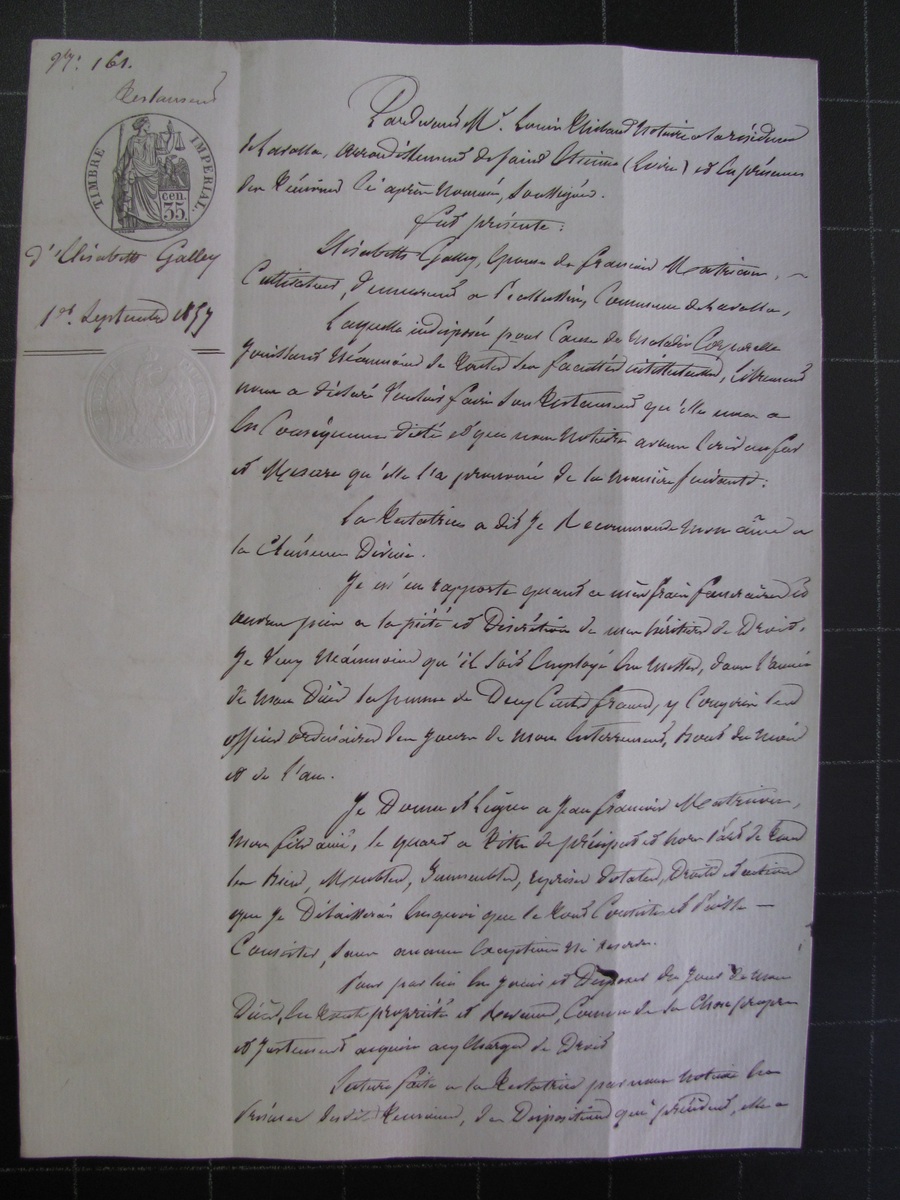 161.
Testament
TIMBRE IMPERIAL
cen.
35
d'Elisabeth Galley
1er Septembre 1857
Pardevant Mr. Louis notaire a la résidence
de Lavalla, arrondissement de Saint Etienne (Loire) et en présence
des témoins ci après nommés, soussignés.
fut présente:
Elisabeth Galley, épouse de francois
Cultivateur, demeurant a Commune de Lavalla,
Laquelle indisposée pour Cause de Maladie Corporelle
jouissant néanmoins de toutes ses facultés intellectuelles, librement
nous a déclaré vouloir faire son testament qu'elle nous a
en Conséquence dicté et que nous Notaire avons écrit au fur
et Mesure qu'elle l'a prononcé de la manière suivante:
La testatrice a dit Je Recommande mon âme a
la Clémence Divine.
Je m'en rapporte quant a mes frais funéraires et
œuvres pies a la piété et Discrétion de mon héritier de Droit,
Je veux néanmoins qu'il soit employé en Messes, dans l'année
de mon Décès la somme de Deux Cents francs, y Compris les
offices ordinaires des jours de mon Enterrement, bout du mois
et de l'an.
Je Donne et Lègue a Jean francois
mon fils ainé, le quart a titre de préciput et hors part de tous
les Biens, Meubles, Immeubles, reprises dotales, Droits et actions
que je Délaisserai en quoi que le tout Consiste et puisse
Consister, sans aucune exception ni reserve.
Pour par lui en jouir et Disposer du jour de mon
Décès, en toute propriété et Revenus, Comme de la Chose propre
et justement acquise aux charges de Droit
Lecture faite a la testatrice par nous Notaire en
présence desdits témoins, des Dispositions qui précèdent, elle a